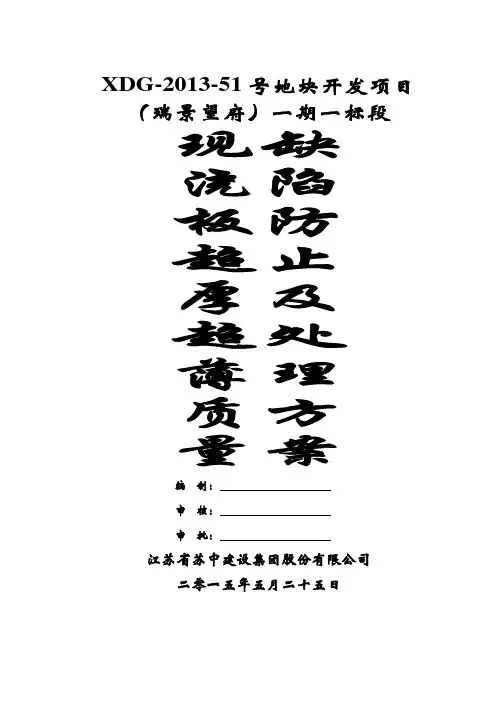 XDG-2013-51号地块开发项目
（瑞景望府）一期一标段
现浇板超厚超薄质量
缺陷防止及处理方案
编 制：
审 核：
审 批：
江苏省苏中建设集团股份有限公司
二零一五年五月二十五日